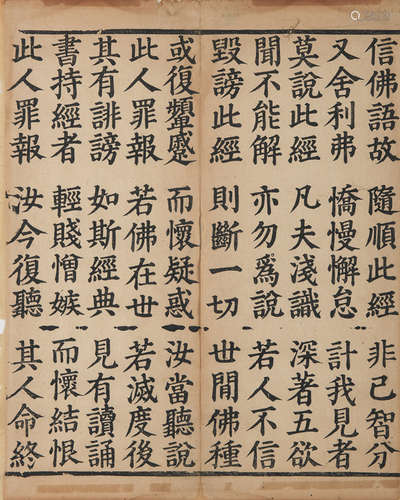 信佛語故 隨順此經 非己智分
又舍利弗 憍慢懈怠 計我見者
莫說此經 凡夫淺識 深著五欲
聞不能解 亦勿為說 若人不信
毀謗此經 則斷一切 世間佛種
或復顰蹙 而懷疑惑 汝當聽說
此人罪報 若佛在世 若滅度後
其有誹謗 如斯經典 見有讀誦
書持經者 輕賤憎嫉 而懷結恨
此人罪報 汝今復聽 其人命終